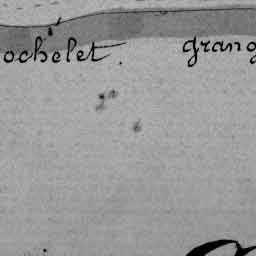 ochelet. grang